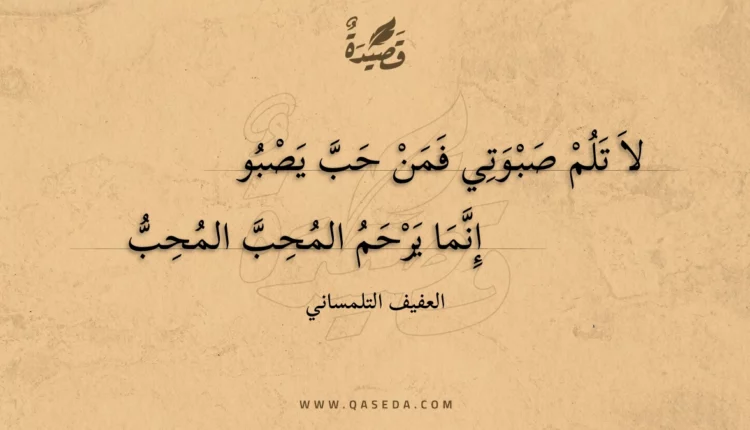 قَصِيْدَةٌ
لاَ تَلُمْ صَبْوَتِي فَمَنْ حَبَّ يَصْبُو
إِنَّمَا يَرْحَمُ المُحِبَّ المُحِبُّ
العفيف التلمساني
WWW.QASEDA.COM